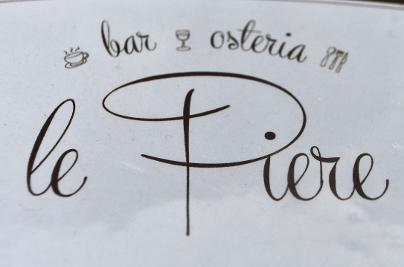 bar osteria
le Piere